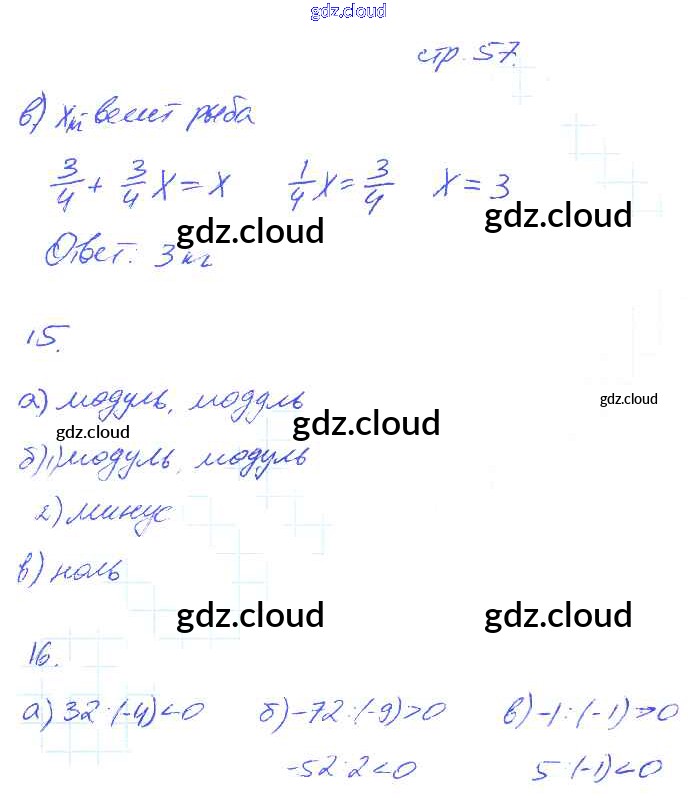 gdz.cloud
стр. 57.
в) x кг - весит рыба
3/4 + 3/4 x = x   1/4 x = 3/4   x = 3
gdz.cloud gdz.cloud
Ответ: 3 кг
15.
а) модуль, модуль
gdz.cloud gdz.cloud gdz.cloud
б) 1) модуль, модуль
2) минус
в) ноль
gdz.cloud gdz.cloud
16.
а) 32 : (-4) < 0   б) -72 : (-9) > 0   в) -1 : (-1) > 0
-52 : 2 < 0   5 : (-1) < 0